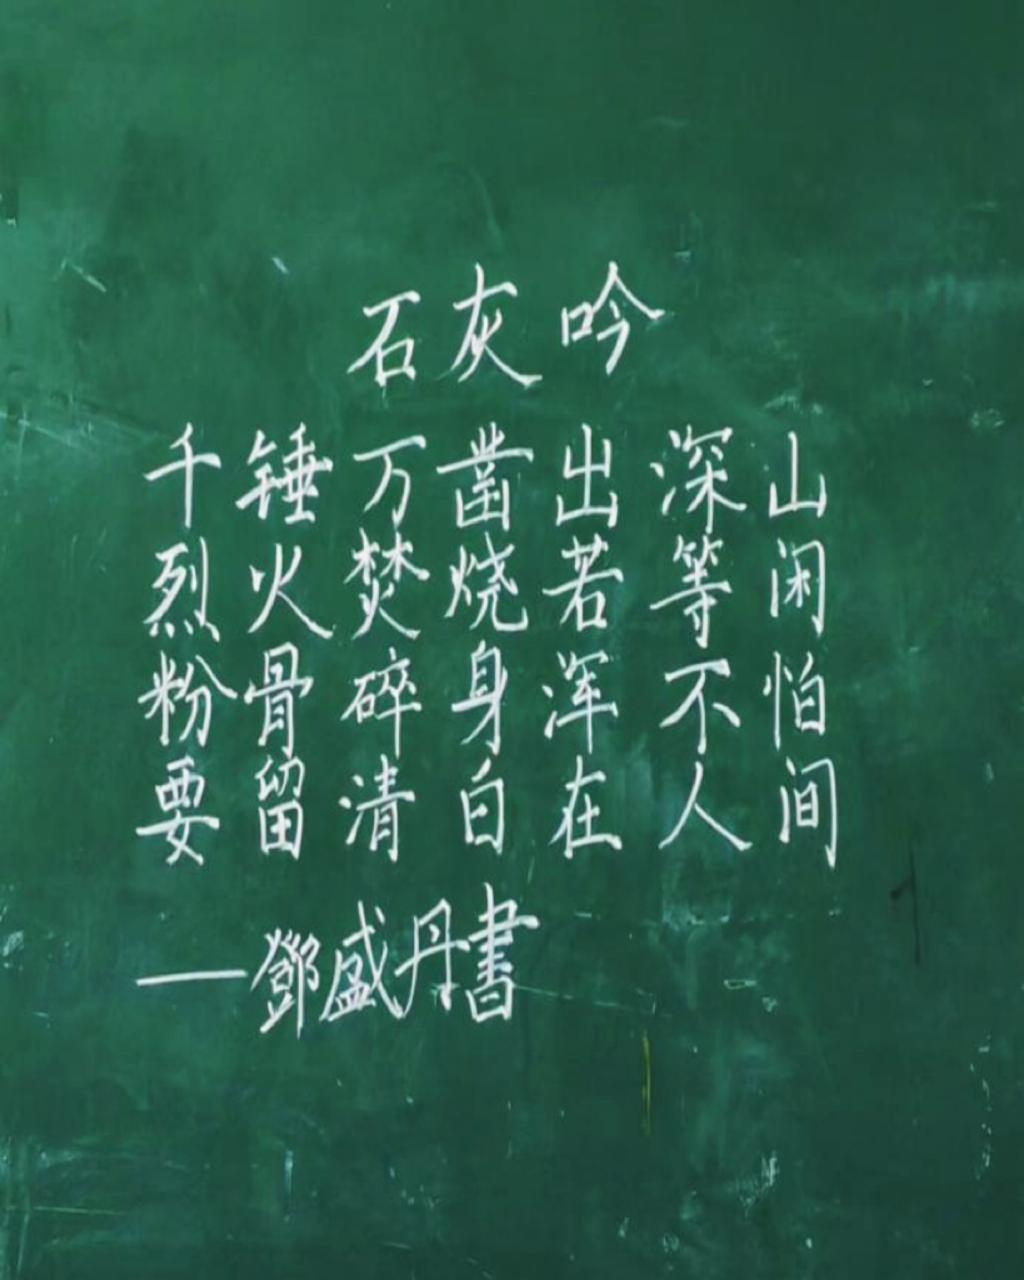 石灰吟
千锤万凿出深山
烈火焚烧若等闲
粉骨碎身浑不怕
要留清白在人间
——鄧盛丹書